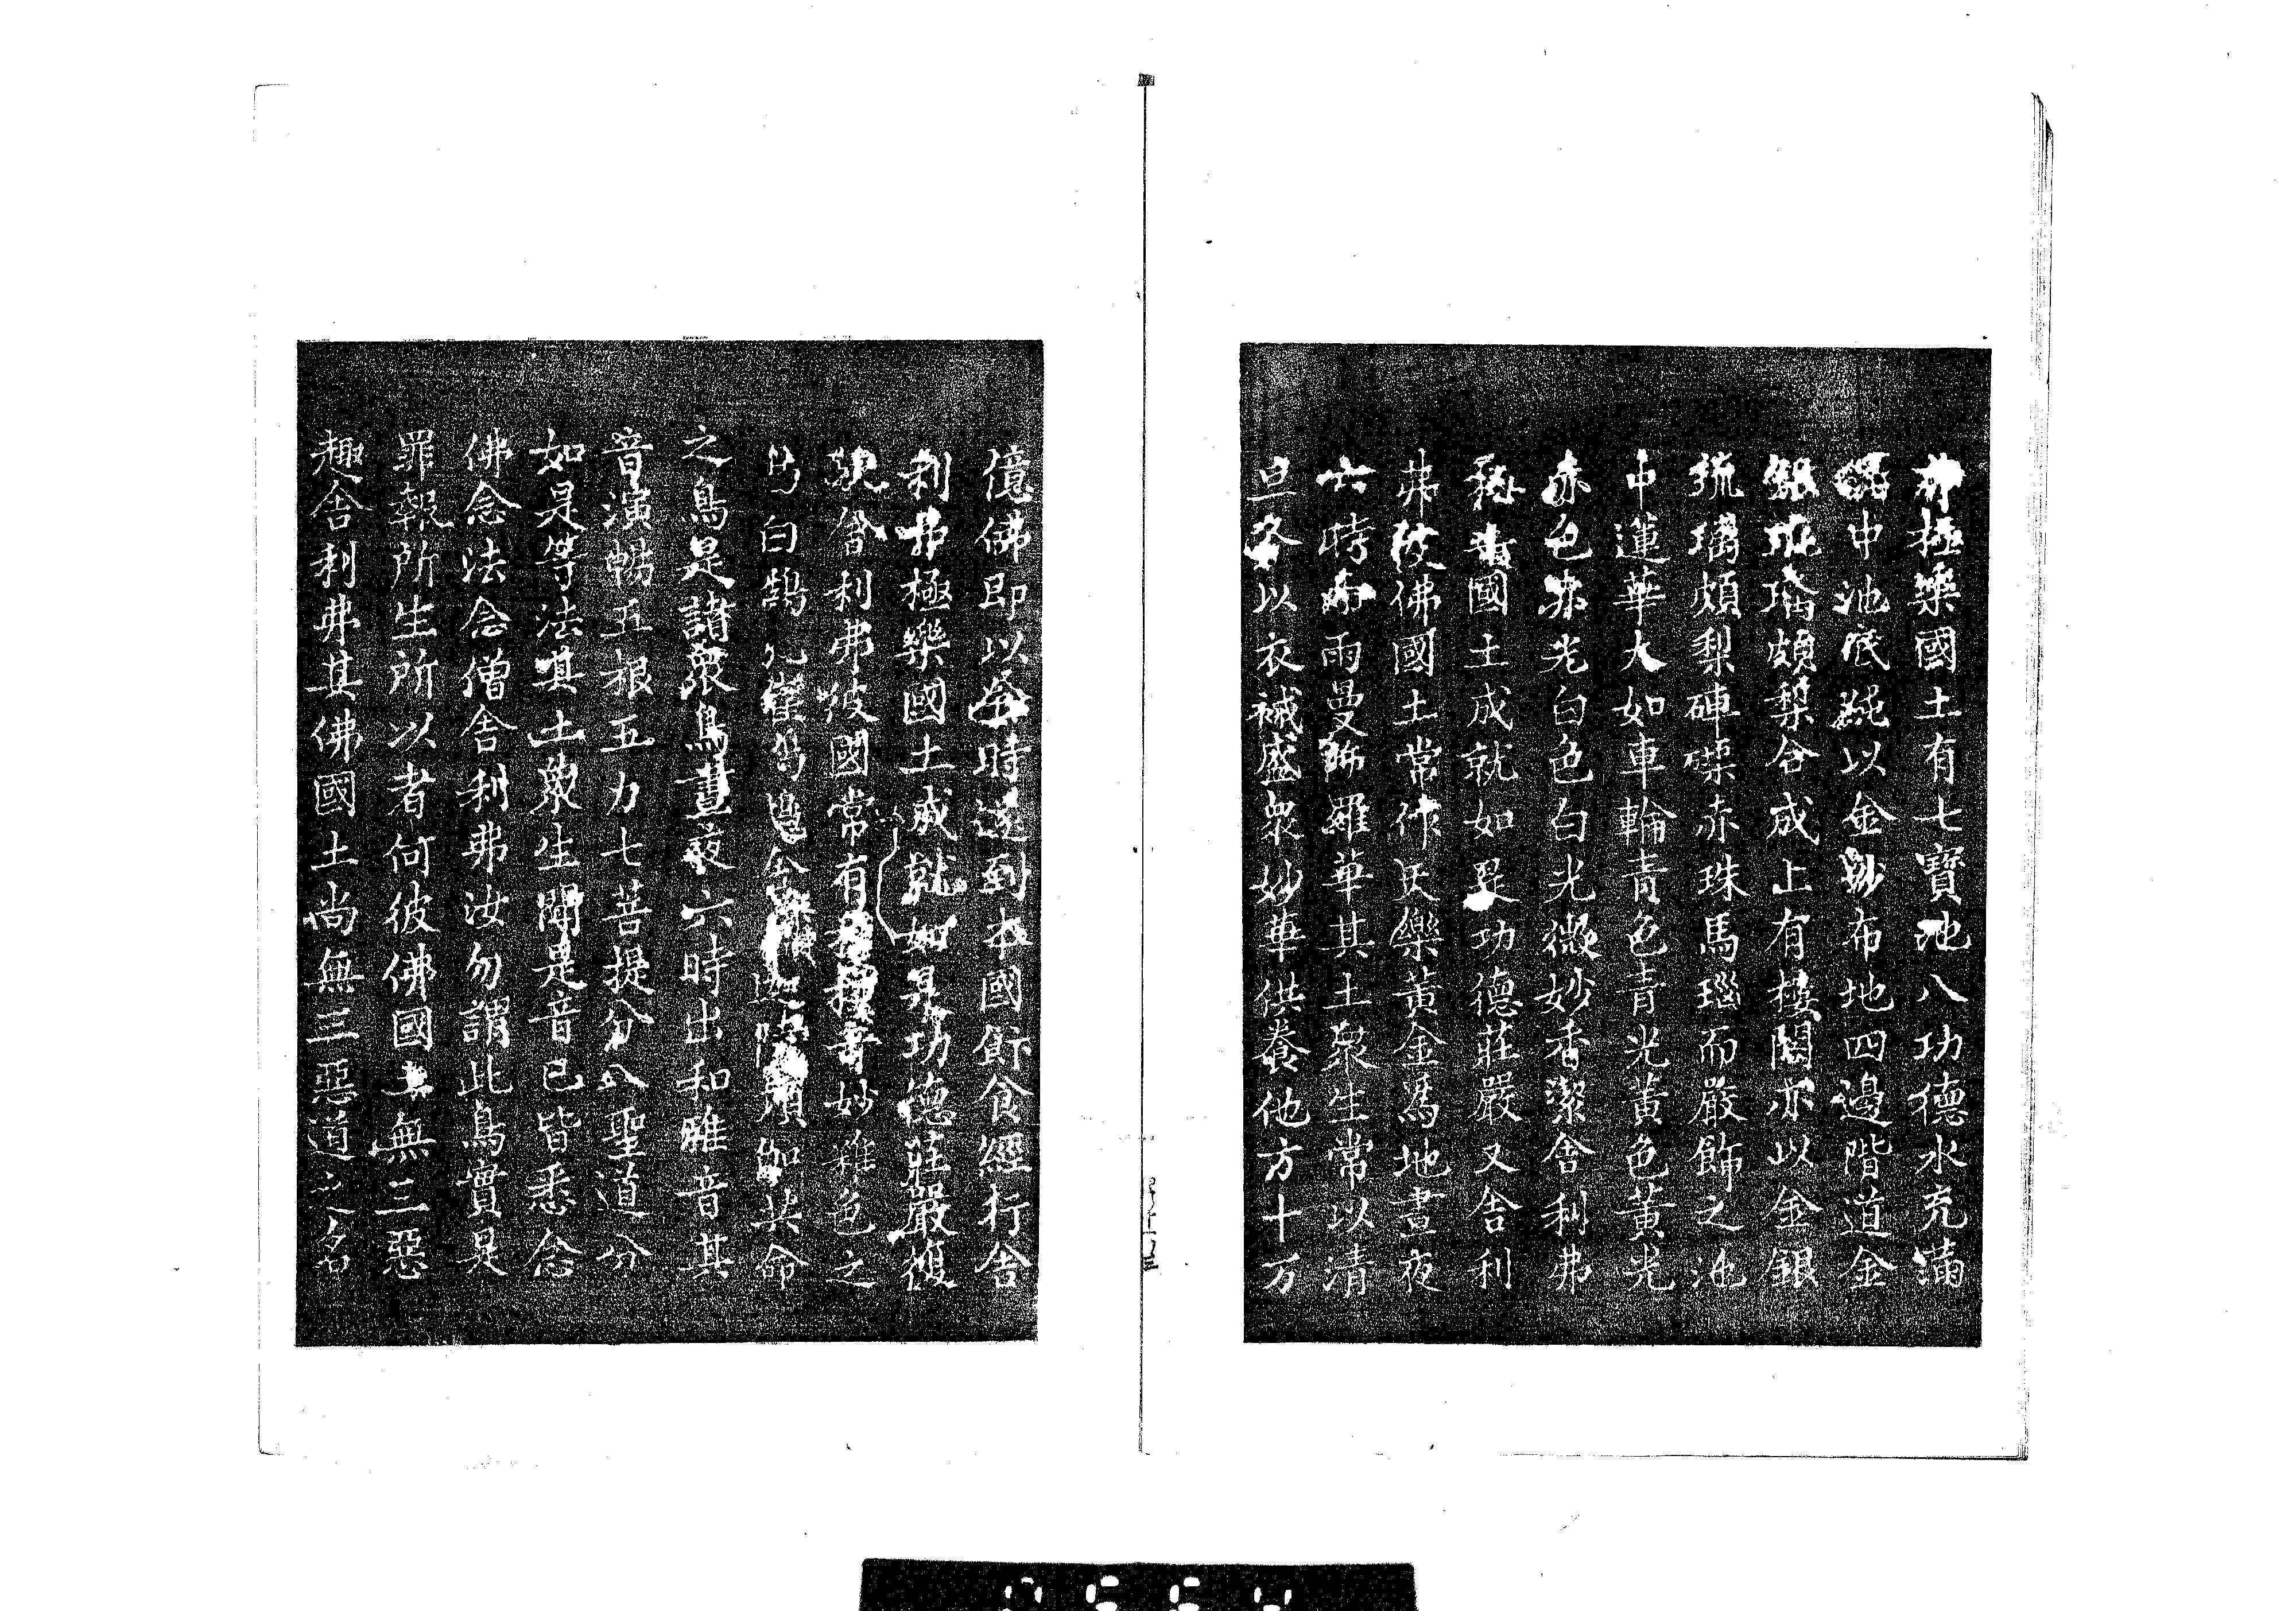 弗極樂國土有七寶池八功德水充滿
其中池底純以金沙布地四邊階道金
銀琉璃頗梨合成上有樓閣亦以金銀
琉璃頗梨硨磲赤珠馬瑙而嚴飾之池
中蓮華大如車輪青色青光黃色黃光
赤色赤光白色白光微妙香潔舍利弗
極樂國土成就如是功德莊嚴又舍利
弗彼佛國土常作天樂黃金為地晝夜
六時雨曼陀羅華其土眾生常以清
旦各以衣裓盛眾妙華供養他方十万
億佛即以食時還到本國飯食經行舍
利弗極樂國土成就如是功德莊嚴復
次舍利弗彼國常有種種奇妙雜色之
鳥白鵠孔雀鸚鵡舍利迦陵頻伽共命
之鳥是諸眾鳥晝夜六時出和雅音其
音演暢五根五力七菩提分八聖道分
如是等法其土眾生聞是音已皆悉念
佛念法念僧舍利弗汝勿謂此鳥實是
罪報所生所以者何彼佛國土無三惡
趣舍利弗其佛國土尚無三惡道之名